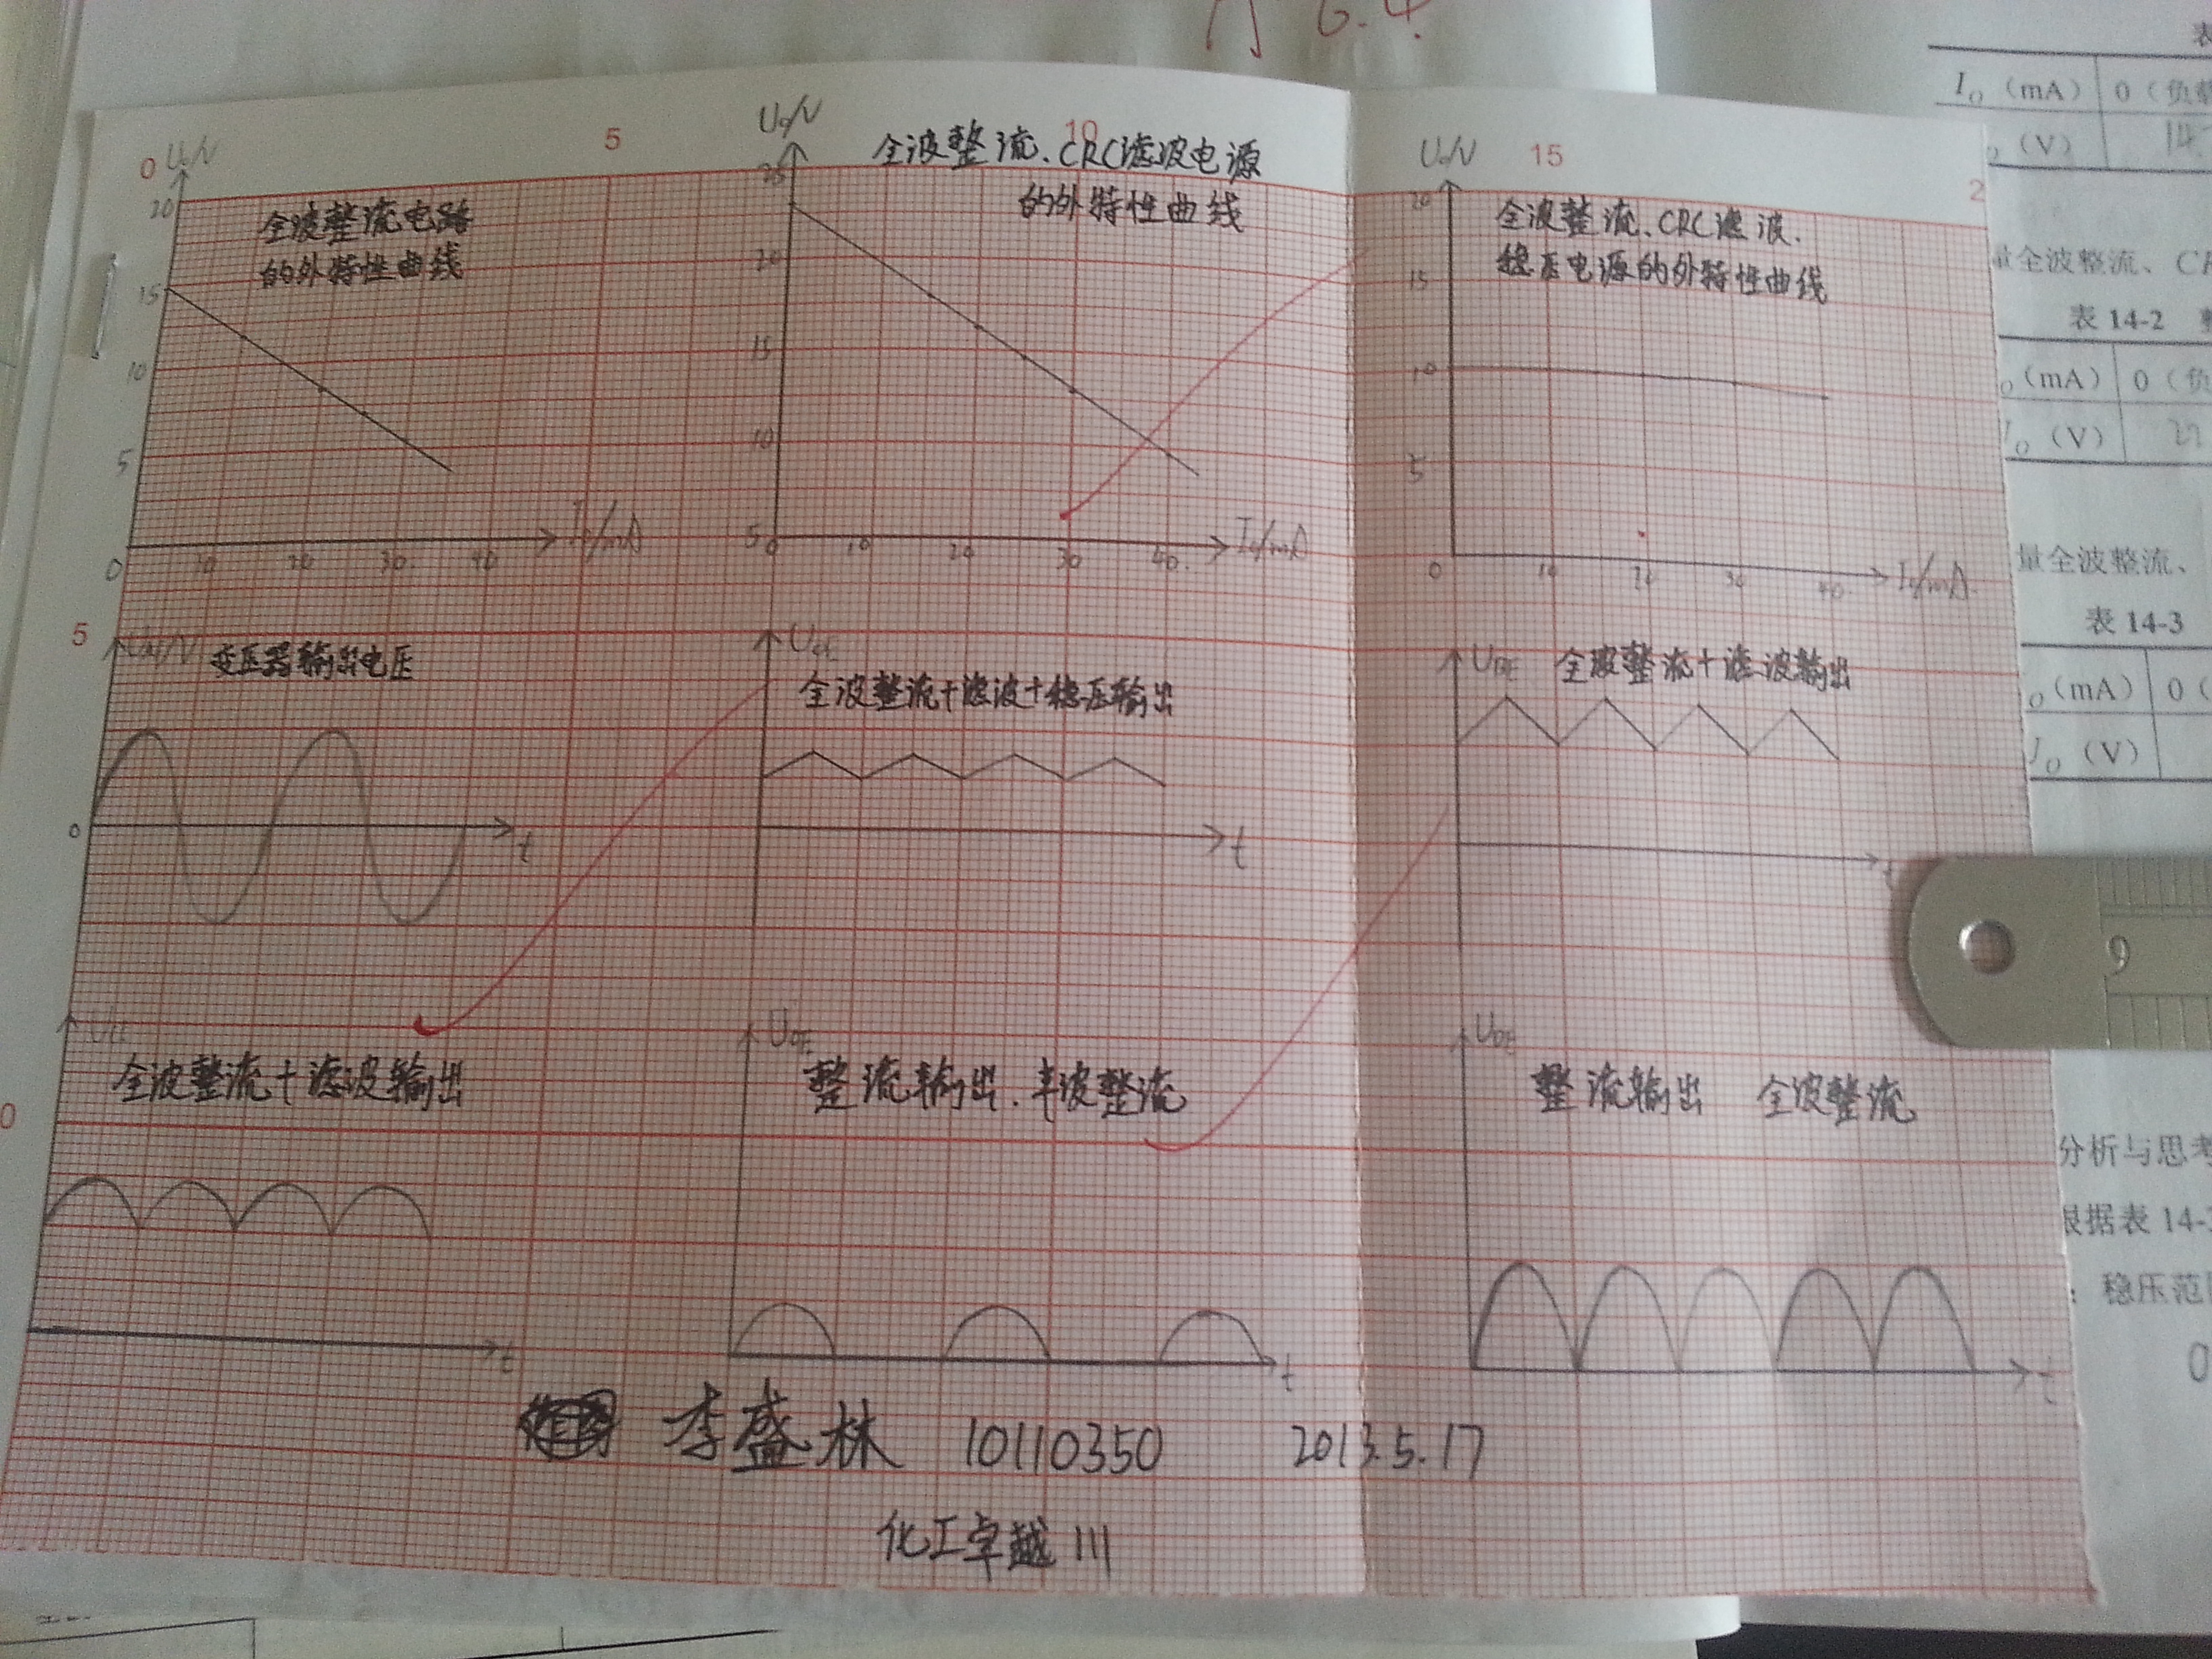 6.4.
0
5
10
15
2
U₀/V
全波整流电路
的外特性曲线
20
15
10
5
0
10
20
30.
40
I₀/mA
U₀/V
全波整流、CRC滤波电源
的外特性曲线
25
20
15
10
5
0
10
20
30
40.
I₀/mA
U₀/V
全波整流、CRC滤波、
稳压电源的外特性曲线
20
15
10
5
0
10
20
30
40.
I₀/mA.
5
变压器输出电压
0
t
全波整流+滤波+稳压输出
t
U_DE
全波整流+滤波输出
t
0
全波整流+滤波输出
t
U_DE
整流输出.半波整流
t
U_DE
整流输出 全波整流
t
李盛林 10110350 2013.5.17
化工卓越111
表
I_O (mA) 0 (负
(V) 14.
量全波整流、C
表 14-2
(mA) 0 (负
(V) 22
量全波整流、
表 14-3
(mA) 0 (
(V)
分析与思考
根据表 14-
: 稳压范
0
9